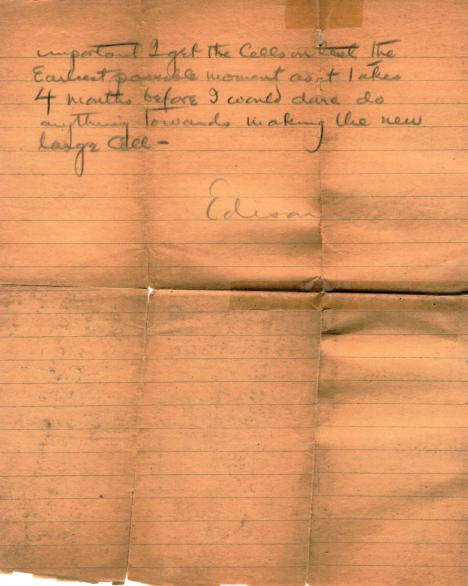 important I get the Cells on test the
Earliest possible moment as it takes
4 months before I would dare do
anything towards making the new
large Cell -
Edison